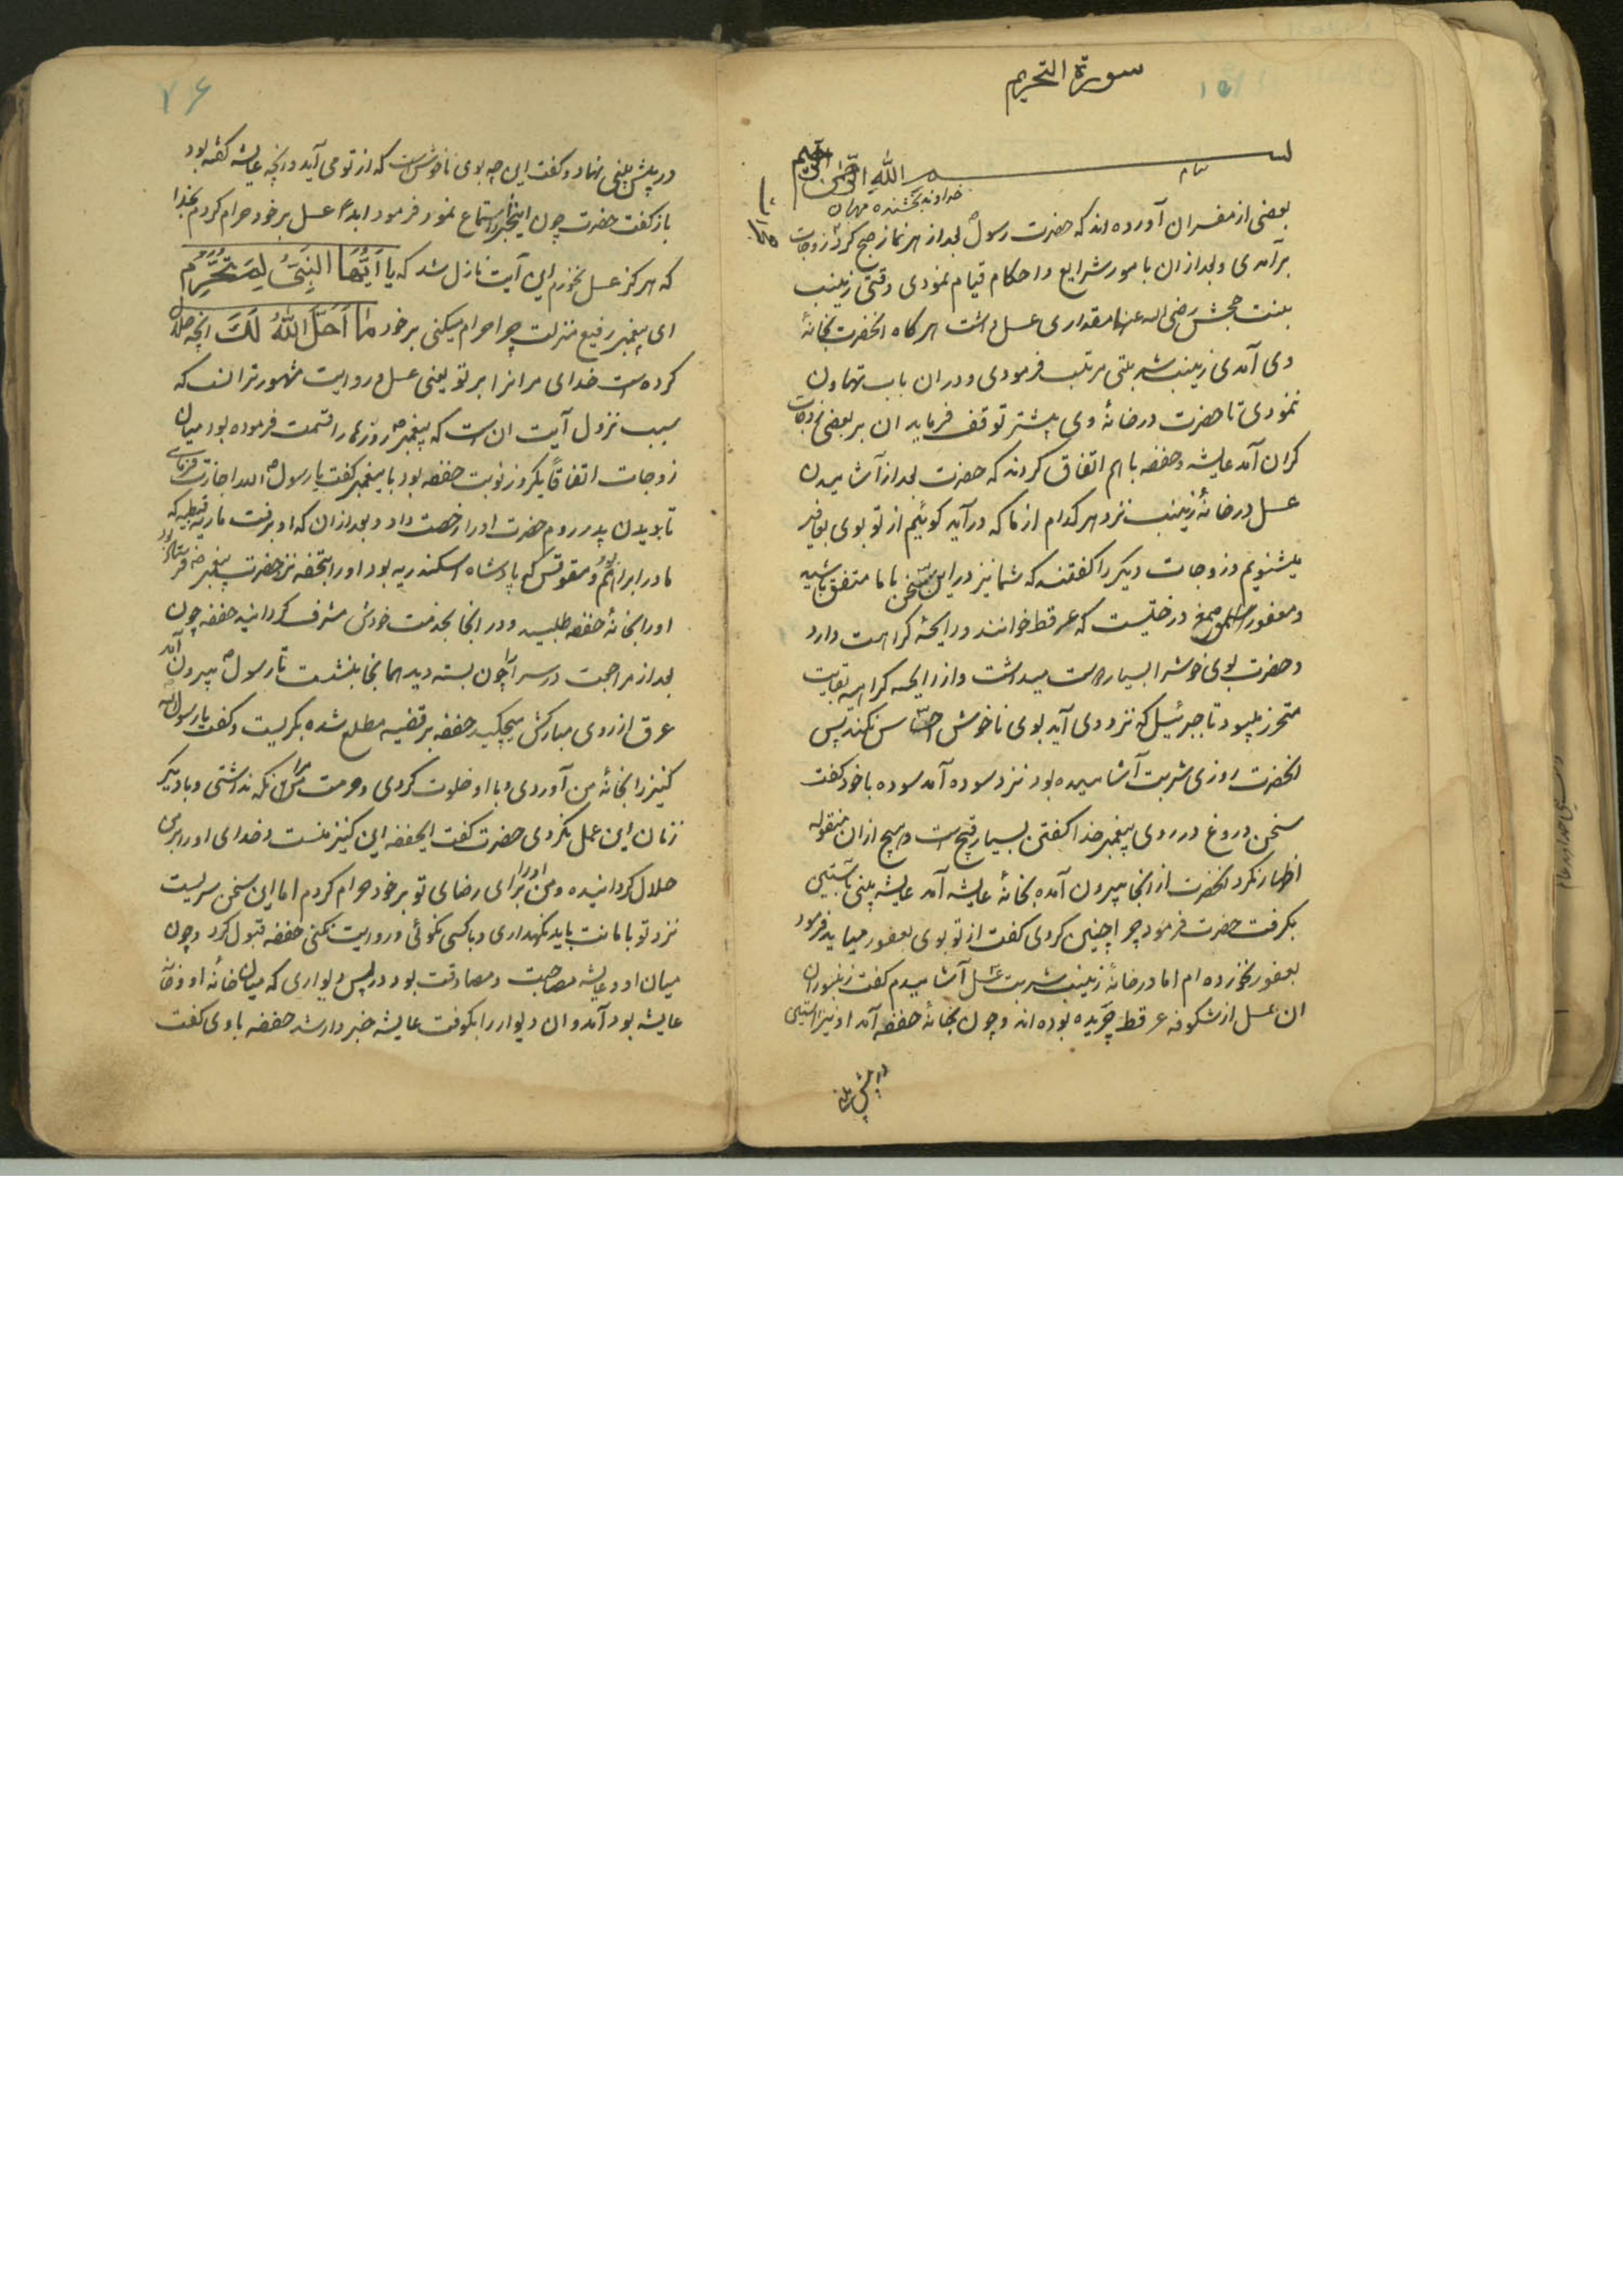 سورة التحریم
بسم الله الرحمن الرحیم
بنام خداوند بخشنده مهربان
بعضی از مفسران آورده اند که حضرت رسول بعد از هر نماز صبح کرد زوجات
برآمدی و بعد از ان بامور شرایع و احکام قیام نمودی وقتی زینب
بنت جحش رضی الله عنها مقداری عسل داشت هرکاه انحضرت بخانهٔ
وی آمدی زینب شربتی مرتب فرمودی و در ان باب تهاون
نمودی تا حضرت در خانهٔ وی بیشتر توقف فرماید ان بر بعضی زوجات
کران آمد عایشه و حفصه باهم اتفاق کردند که حضرت بعد از آشامیدن
عسل در خانهٔ زینب نزد هرکدام از ما که درآید کوئیم از تو بوی مغافیر
میشنویم و زوجات دیکر را کفتند که شما نیز در این سخن با ما متفق باشید
و مغفور صمغ درختیست که عرفط خوانند و رایحهٔ کراهت دارد
و حضرت بوی خوش را بسیار دوست میداشت و از رایحه کراهیه بغایت
متحرز میبود تا جبرئیل که نزد وی آید بوی ناخوش احساس نکند پس
انحضرت روزی شربت آشامیده بود نزد سوده آمد سوده با خود کفت
سخن دروغ در روی پیغمبر خدا کفتن بسیار قبیح است و هیچ از ان مقوله
اظهار نکرد انحضرت از انجا بیرون آمده بخانهٔ عایشه آمد عایشه بینی باستین
بکرفت حضرت فرمود چرا چنین کردی کفت از تو بوی مغفور میاید فرمود
مغفور نخورده ام اما در خانهٔ زینب شربت عسل آشامیدم کفت زنبوران
ان عسل از شکوفه عرفط چریده بوده اند و چون بخانهٔ حفصه آمد او نیز استین
در پیش بینی
۷۶
در پیش بینی نهاد و کفت این چه بوی ناخوش است که از تو می آید و انچه عایشه کفته بود
باز کفت حضرت چون اینخبر را استماع نمود فرمود ابدا عسل بر خود حرام کردم بخدا
که هرکز عسل نخورم این آیت نازل شد که یا اَیُّهَا النَّبِیُّ لِمَ تُحَرِّمُ
ای پیغمبر رفیع منزلت چرا حرام میکنی بر خود مَا اَحَلَّ اللهُ لَکَ انچه حلال
کرده است خدای مر انرا بر تو یعنی عسل و روایت مشهورتر انست که
سبب نزول آیت ان است که پیغمبر روزها را قسمت فرموده بود میان
زوجات اتفاقاً یکروز نوبت حفصه بود با پیغمبر کفت یا رسول الله اجازت فرمای
تا بدیدن پدر روم حضرت او را رخصت داد و بعد از ان که او برفت ماریه قبطیه که
مادر ابراهیم بود و مقوقس که پادشاه اسکندریه بود او را بتحفه نزد حضرت پیغمبر فرستاده بود
او را بخانهٔ حفصه طلبید و در انجا بخدمت خودش مشرف کردانید حفصه چون
بعد از مراجعت در سرا را چون بسته دید همانجا بنشست تا رسول بیرون آمد
عرق از روی مبارکش میچکید حفصه بر قضیه مطلع شده بکریست و کفت یا رسول الله
کنیز را بخانهٔ من آوردی و با او خلوت کردی و حرمت مرا نکه نداشتی و با دیکر
زنان این عمل نکردی حضرت کفت ایحفصه این کنیز منست و خدای او را بر من
حلال کردانیده و من او را برای رضای تو بر خود حرام کردم اما این سخن سریست
نزد تو بامانت باید نکهداری و با کسی نکوئی و روایت نکنی حفصه قبول کرد و چون
میان او و عایشه مصاحبت و مصادقت بود در پس دیواری که میان خانهٔ او و خانهٔ
عایشه بود آمد و ان دیوار را بکوفت عایشه خبردار شد حفصه با وی کفت